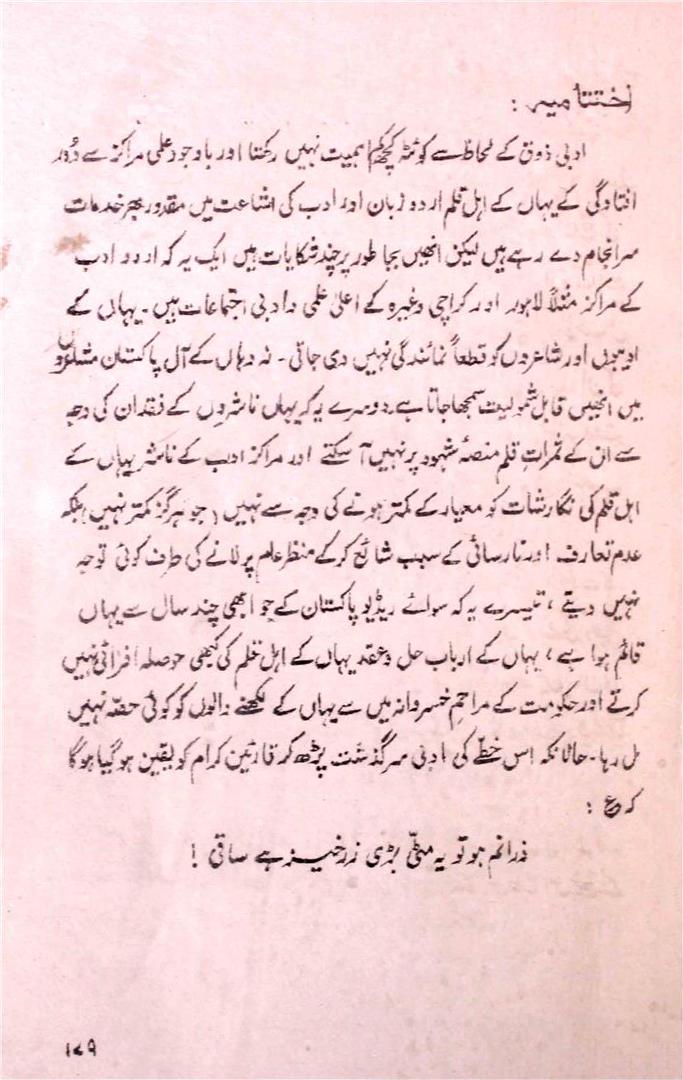 اختتامیہ :
ادبی ذوق کے لحاظ سے کوئٹہ کچھ کم اہمیت نہیں رکھتا اور باوجود علمی مراکز سے دُور
افتادگی کے یہاں کے اہل قلم اردو زبان اور ادب کی اشاعت میں مقدور بھر خدمات
سرانجام دے رہے ہیں لیکن انھیں بجا طور پر چند شکایات ہیں ایک یہ کہ اردو ادب
کے مراکز مثلاً لاہور اور کراچی وغیرہ کے اعلیٰ علمی و ادبی اجتماعات ہیں ۔ یہاں کے
ادیبوں اور شاعروں کو قطعاً نمائندگی نہیں دی جاتی ۔ نہ وہاں کے آل پاکستان مشاعروں
میں انھیں قابل شمولیت سمجھا جاتا ہے ۔ دوسرے یہ کہ یہاں ناشروں کے فقدان کی وجہ
سے ان کے ثمراتِ قلم منصۂ شہود پر نہیں آ سکتے اور مراکز ادب کے ناشر یہاں کے
اہل قلم کی نگارشات کو معیار کے کمتر ہونے کی وجہ سے نہیں ( جو ہرگز کمتر نہیں ) بلکہ
عدم تعارف اور نارسائی کے سبب شائع کر کے منظر عام پر لانے کی طرف کوئی توجہ
نہیں دیتے ، تیسرے یہ کہ سوائے ریڈیو پاکستان کے جو ابھی چند سال سے یہاں
قائم ہوا ہے ، یہاں کے ارباب حل و عقد یہاں کے اہل قلم کی کبھی حوصلہ افزائی نہیں
کرتے اور حکومت کے مراحم خسروانہ میں سے یہاں کے لکھنے والوں کو کوئی حصّہ نہیں
مل رہا ۔ حالانکہ اس خطّے کی ادبی سرگذشت پڑھ کر قارئین کرام کو یقین ہو گیا ہو گا
کہ ع :
ذرا نم ہو تو یہ مٹّی بڑی زرخیز ہے ساقی !
۱۷۹